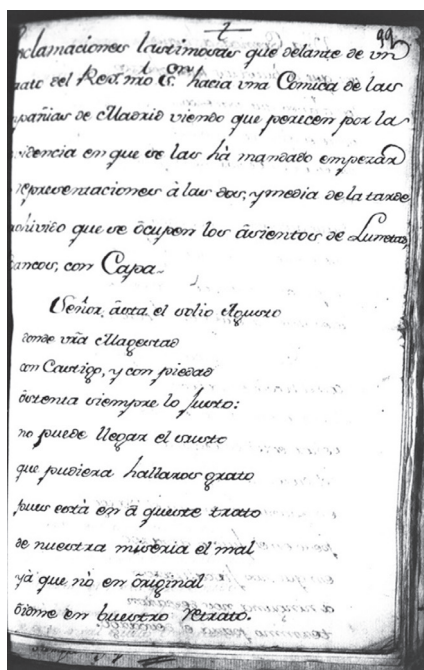 99
clamaciones lastimosas que delante de vn
rato del Rey nrõ Sõr hacia vna Comica de las
pañias de Madrid viendo que perecen por la
videncia en que se las hà mandado empezar
representaciones à las dos, y media de la tarde
ohivido que se ocupen los àsientos de Lunetas,
ancos, con Capa.
Señor, àsta el solio Agusto
donde vrã Magestad
con Castigo, y con piedad
òstenta siempre lo Justo:
no puede llegar el susto
que pudiera hallaros grato
pues està en à queste trato
de nuestra miseria el mal
yà que nò en òriginal
òidme en buestro retrato.